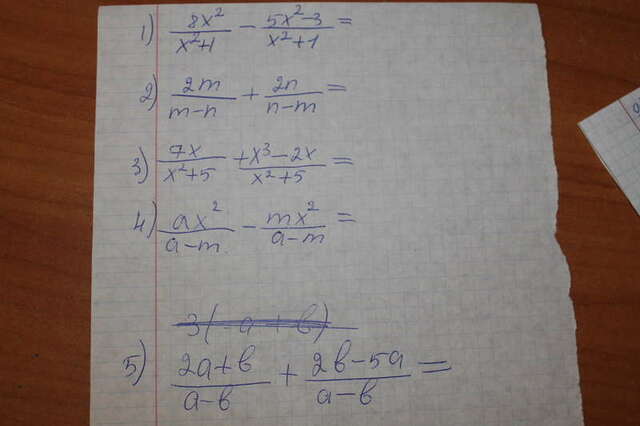 1) 8x²/(x²+1) − (5x²−3)/(x²+1) =
2) 2m/(m−n) + 2n/(n−m) =
3) 7x/(x²+5) + (x³−2x)/(x²+5) =
4) ax²/(a−m) − mx²/(a−m) =
3(−a+b)
5) (2a+b)/(a−b) + (2b−5a)/(a−b) =